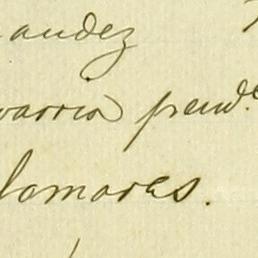 andez
varria prend.e
lomares.